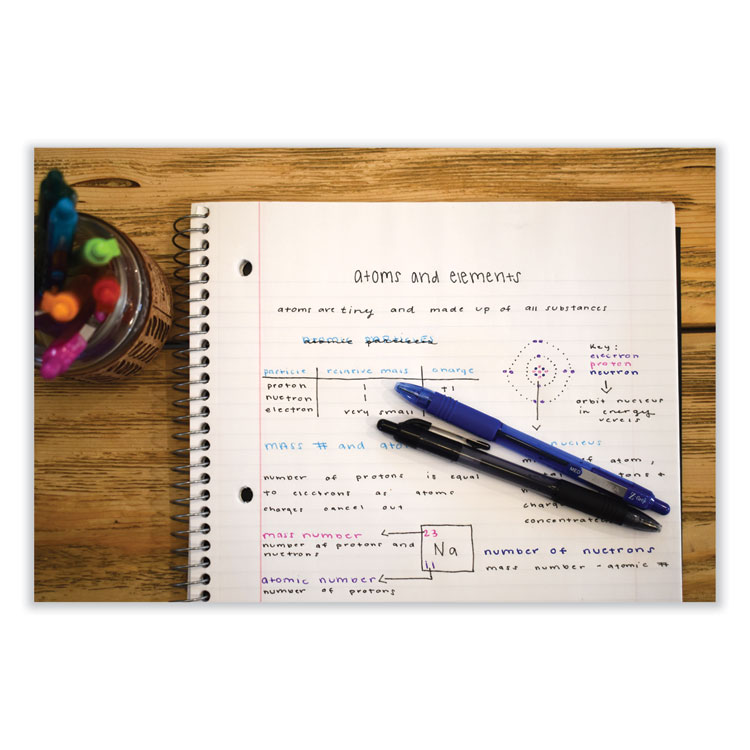 atoms and elements
atoms are tiny and made up of all substances
atomic particles
particle relative mass charge
proton 1 +1
nuetron 1
electron very small
Key:
electron
proton
neutron
orbit nucleus
in energy
levels
mass # and
nucleus
number of protons is equal
to electrons as atoms
charges cancel out
of atom,
concentrate
mass number
number of protons and
nuetrons
23
Na
11
atomic number
number of protons
number of nuetrons
mass number - atomic #
MED
Z-Grip